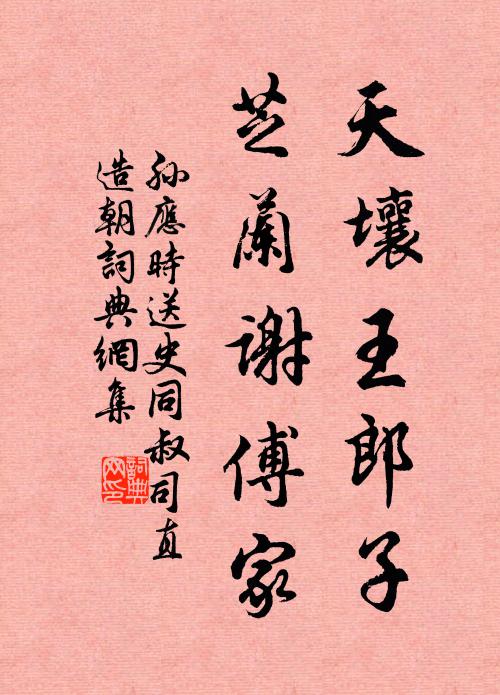 天壤王郎子
芝蘭謝傅家
孫應時送史同叔司直
造朝詞典網集
詞典網印